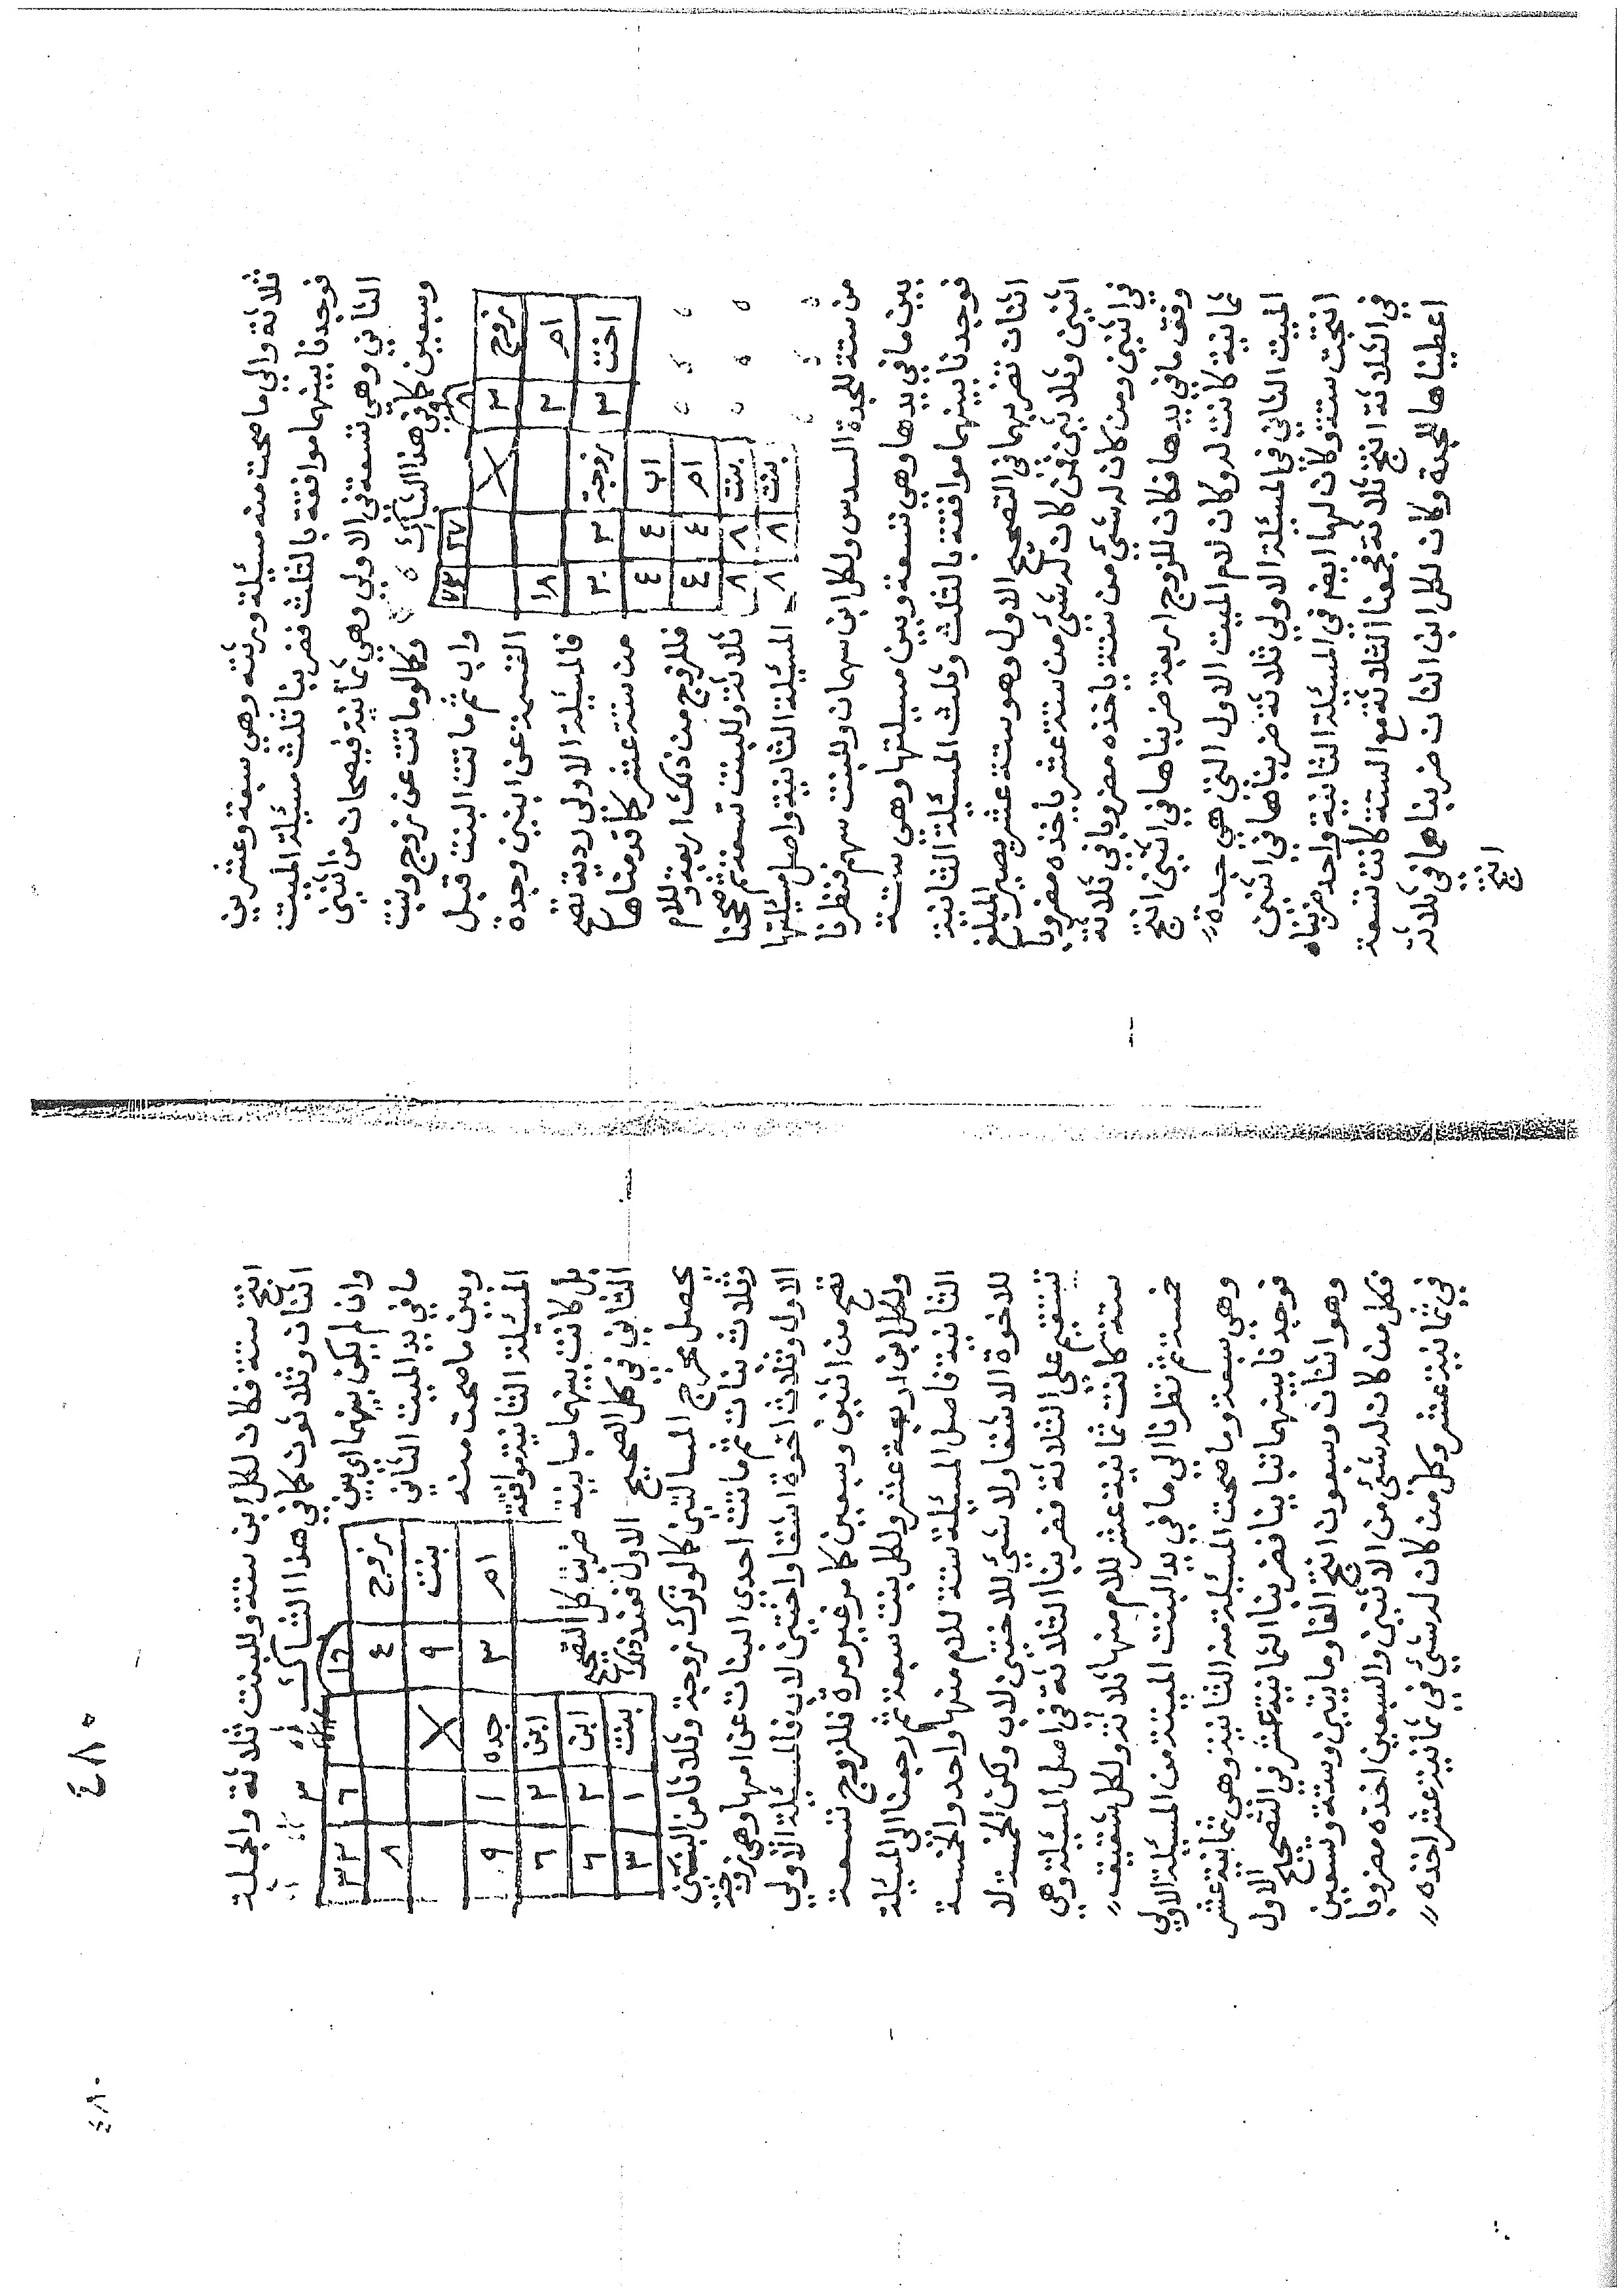 ثلاثة والي ما صحت منه مسئلة ورثته وهي سبعة وعشرين
فوجدنا بينهما موافقة بالثلث فضربنا ثلث مسئلة الميت
الثاني وهي تسعة في الاولي وهي ثمانية فيصحان من اثنين
وسبعين كما في هذا الشباك
وكالو ماتت عن زوج وبنت
واب ثم ماتت البنت قبل
القسمة عن ابنين وجدة
فالمسيلة الاولى ردية تصح
من ستة عشر كما قدمناها
فللزوج من ذلك اربعة وللام
ثلاثة وللبنت تسعة ثم صححنا
المسيلة الثانية واصل مسيلتها
زوج ٣
ام ٢
اخت ٣
٨
٢٧
٧٢
١٨
زوجة ٣ ٣٠
اب ٤ ٤
ام ٤ ٤
بنت ٨ ٨
بنت ٨ ٨
من ستة للجدة السدس ولكل ابن سهمان وللبنت سهم فنظرنا
بين ما في يدها وهي تسعة وبين مسيلتها وهي ستة
فوجدنا بينهما موافقة بالثلث وثلث المسيلة الثانية
اثنان تضربهما في التصحيح الاول وهو ستة عشر يصير المبلغ
اثنين وثلاثين فمن كان له شئ من ستة عشر يأخذه مضروبا
في اثنين ومن كان له شئ من ستة ياخذه مضروبا في ثلاثة
وفق ما في يدها فكان للزوج اربعة ضربناها في اثنين انتج
ثمانية كانت له وكان لام الميت الاول التي هي جدة
الميت الثاني في المسيلة الاولي ثلاثة ضربناها في اثنين
انتجت ستة وكان لها ايضا في المسيلة الثانية واحد ضربناه
في الثلاثة انتج ثلاثة فجمعنا الثلاثة مع الستة كانت تسعة
اعطيناها للجدة وكان لكل ابن اثنان ضربناهما في ثلاثة
انتج
انتج ستة فكان لكل ابن ستة وللبنت ثلاثة والجملة
اثنان وثلاثون كما في هذا الشباك
وان لم يكن بينهما اي بين
ما في يد الميت الثاني
وبين ما صحت منه
المسيلة الثانية موافقة
بل كانت بينهما مباينة ضربت كل التصحيح
الثاني في كل الصحيح الاول فعند ذلك
زوج ٤ ٨
بنت ٩
ام ٣ جده ١ ٩
ابن ٢ ٦
ابن ٢ ٦
بنت ١ ٣
٦
٣٢
يحصل مخرج المسالتين كالو ترك زوجة وثلاثا من البنين
وثلاث بنات ثم ماتت احدى البنات عن امها وهي زوجة
الاول وثلاث اخوة اشقا واختين لاب فالمسيلة الاولي
تصح من اثنين وسبعين كما مر غير مرة فللزوج تسعة
ولكل ابن اربعة عشر ولكل بنت سبعة ثم رجعنا الي المسيلة
الثانية فاصل المسيلة ستة للام منها واحد والخمسة
للاخوة الاشقا ولا شي للاختين لاب ولكن الخمسة لا
تستقيم على الثلاثة فضربنا الثلاثة في اصل المسيلة وهي
ستة كانت ثمانية عشر للام منها ثلاثة ولكل شقيق
خمسة ثم نظرنا الي ما في يد البنت الميتة من المسيلة الاولي
وهي سبعة وما صحت المسيلة منه الثانية وهي ثمانية عشر
فوجدنا بينهما تباينا فضربنا الثمانية عشر في التصحيح الاول
وهو اثنان وسبعون انتج الفا ومايتين وستة وتسعين
فكل من كان له شئ من الاثنين والسبعين اخذه مضروبا
في ثمانية عشر وكل من كان له شئ في ثمانية عشر اخذه
٤٨٠
٤٨٠